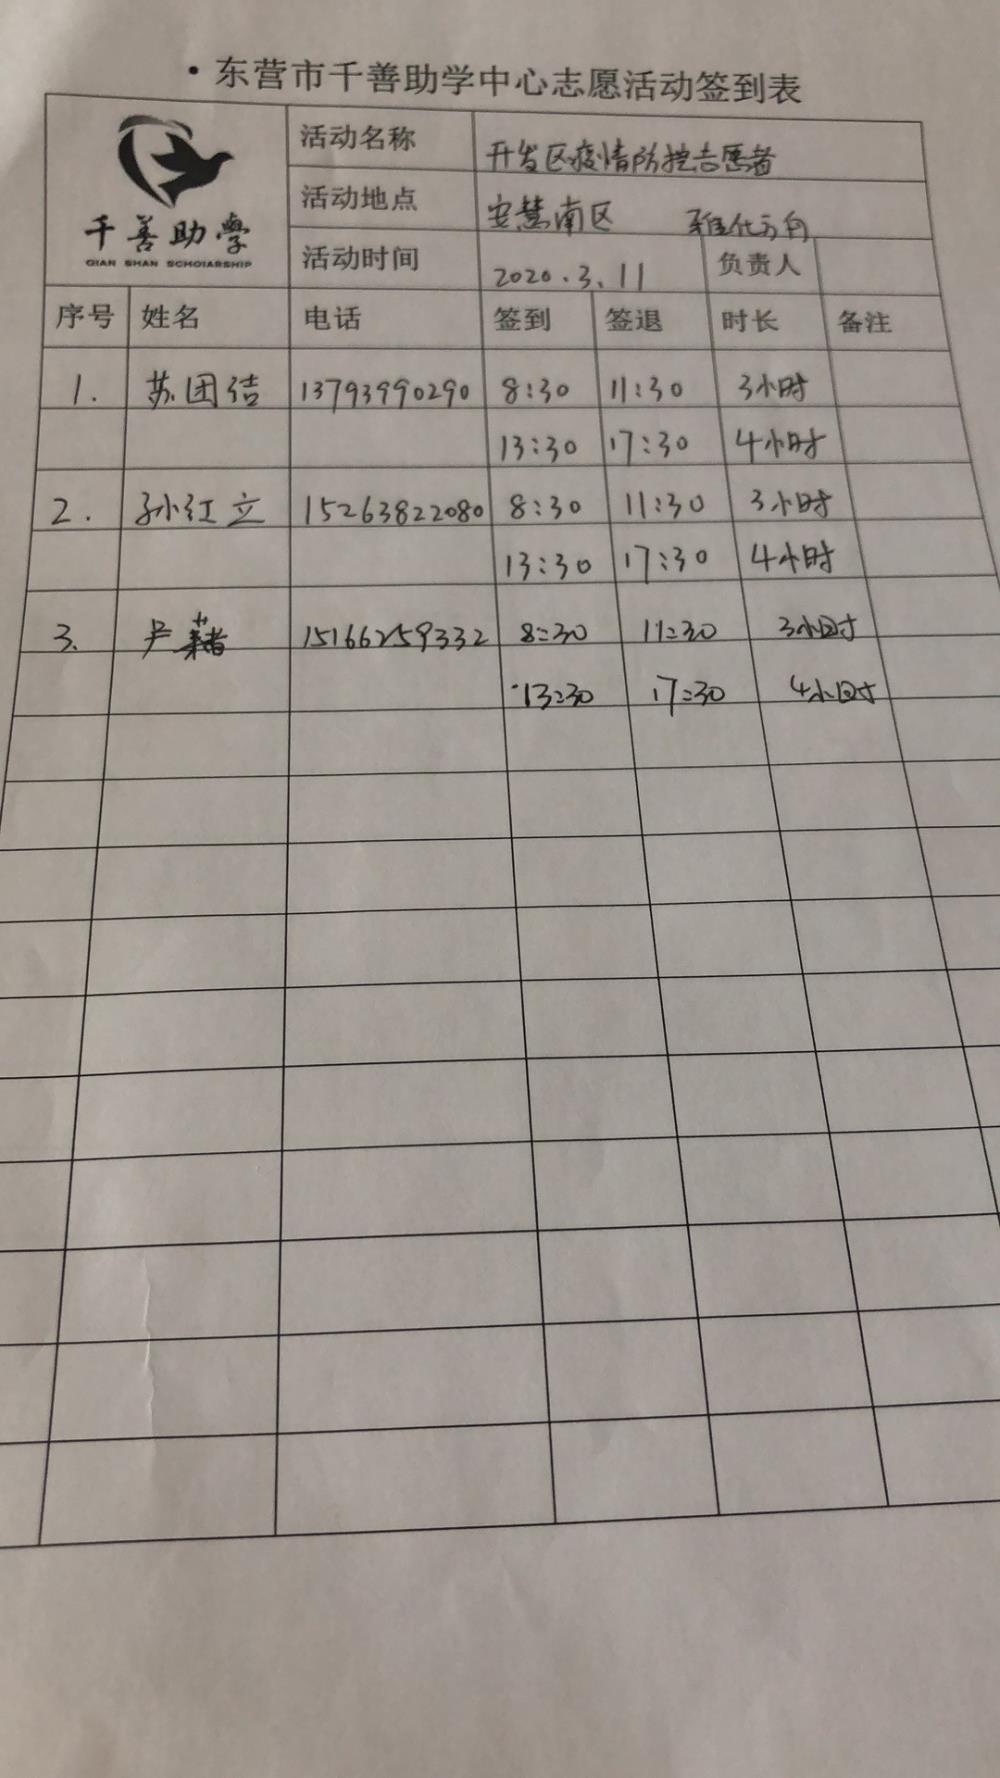 ·东营市千善助学中心志愿活动签到表
千善助學
QIAN SHAN SCHOlARSHIP
活动名称 开发区疫情防控志愿者
活动地点 安慧南区
活动时间 2020.3.11 负责人
序号 姓名 电话 签到 签退 时长 备注
1. 苏团结 13793990290 8:30 11:30 3小时
13:30 17:30 4小时
2. 孙红立 15263822080 8:30 11:30 3小时
13:30 17:30 4小时
3. 15166259332 8:30 11:30 3小时
13:30 17:30 4小时